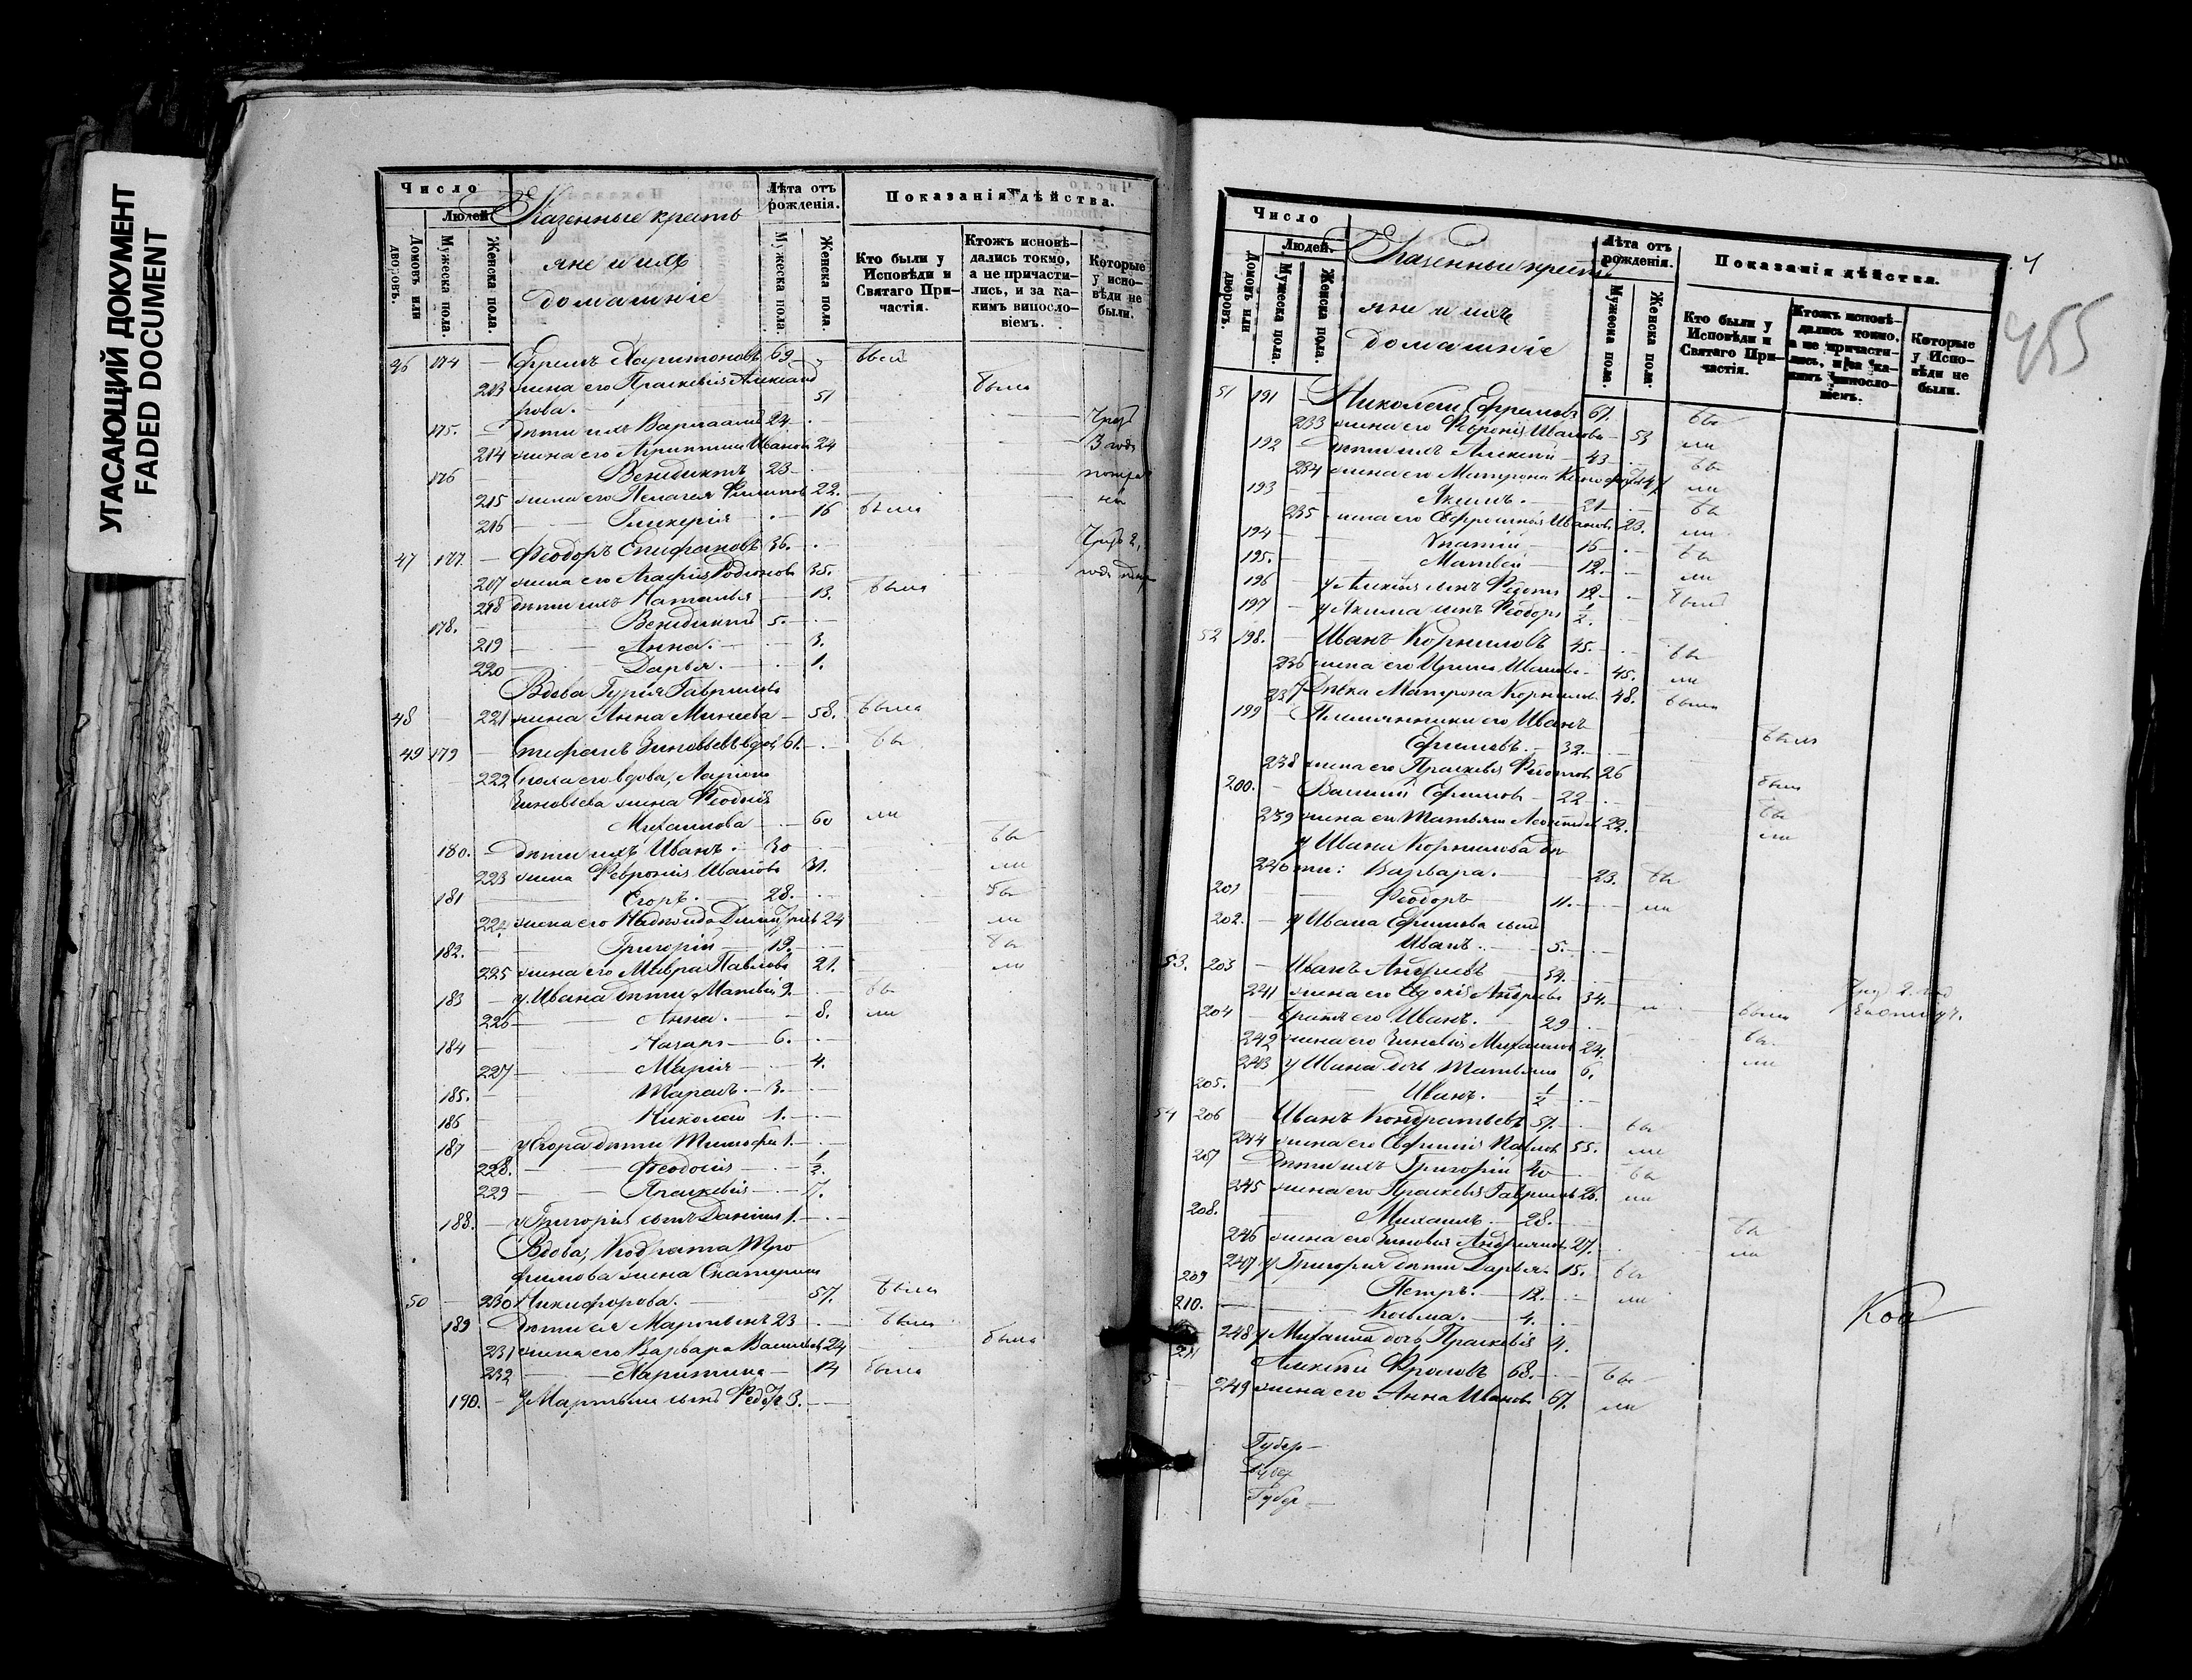 УГАСАЮЩИЙ ДОКУМЕНТ
FADED DOCUMENT
Число
Людей
Домовъ или дворовъ.
Мужеска пола.
Женска пола.
Казенные кресть
яне и ихъ
домашніе
Лѣта отъ рожденія.
Мужеска пола.
Женска пола.
Показанія дѣйства.
Кто были у Исповѣди и Святаго При-частія.
Ктожъ исповѣ-дались токмо, а не причасти-лись, и за ка-кимъ винословіемъ.
Которые у испо-вѣди не были.
46 174 — Ефремъ Харитоновъ 69
213 жена его Праскевія Александ 51 была
рова.
175. — дѣти ихъ Варлаамъ 24
214 жена его Агрипина Иванова 24
176 Венидиктъ 23
215 жена его Пелагея Филипов 22.
216 Гликерія 16 была
47 177. — Феодоръ Епифановъ 36.
217 жена его Агафія Родіонова 35.
218 дѣти ихъ Наталья 13. была
178. Венидиктъ 5.
219 Анна. 3.
220 Дарья. 1.
Вдова Гурія Гаврилова
48 221 жена Анна Минеева 58. была
49 179 — Стефанъ Зиновьевъ вдов 61. бы
222 вдова, Ларіона
Зиновьева жена Феодосія
Михаилова 60 ли
180. — дѣти ихъ Иванъ. 30 бы
223 жена Февронія Иванова 31. ли
181 Егоръ. 28. бы
224 жена его Надежда Димитріев 24 ли
182. Григорій 19. бы
225 жена его Мавра Павлова 21. ли
183 — у Ивана дѣти Матвей 9. бы
226 Анна. 8. ли
184 Назаръ 6.
227 Марія 4.
185. Тарасъ 3.
186 Николай 1.
187 — у Егора дѣти Тимофей 1.
228. Феодосія ½.
229 Праскевія 7.
188. — у Григорія сынъ Даніилъ 1.
Вдова, Кодрата Тро
фимова жена Екатерина
50 230 Никифорова. 57. была
189 Дѣти ея Мартынъ 23 былъ
231 жена его Варвара Васильев 24 была
232 Харитина 14 была
190. — У Мартына сынъ Федоръ 3.
455
Число
Людей.
Домовъ или дворовъ.
Мужеска пола.
Женска пола.
Казенные кресть
яне и ихъ
домашніе
Лѣта отъ рожденія.
Мужеска пола.
Женска пола.
Показанія дѣйства.
Кто были у Исповѣди и Святаго При-частія.
Ктожъ исповѣ-дались токмо, а не причасти-лись, и за ка-кимъ винословіемъ.
Которые у Испо-вѣди не были.
51 191 — Николай Ефремовъ 67. бы
233 жена его Февронія Иванова 53 ли
192 дѣти ихъ Алексѣй 43 бы
234 жена его Матрона 41 ли
193 Якимъ. 21 бы
235 жена его Ефросинія Иванов 23. ли
194 Ипатій 15 бы
195. Матвей 12. ли
196 у Алексѣя сынъ Федотъ 12 былъ
197 — у Якима сынъ Феодоръ ½.
52 198. — Иванъ Корниловъ 45. бы
236 жена его Ирина Иванова 45. ли
237 Дѣвка Матрона Корнилова 48. была
199 — Племянники его Иванъ
Ефимовъ. 32. былъ
238 жена его Праскевія 26
200. — Василій Ефимовъ 22 былъ
239 жена его Татьяна 22. бы ли
у Ивана Корнилова дѣ
240 ти: Варвара. 23. бы
201 Феодоръ 11. ли
202. — у Ивана Ефимова сынъ
Иванъ. 5.
53. 203 — Иванъ Андреевъ 34.
241 жена его Евдокія Андреева 34.
204 — братъ его Иванъ. 29 былъ
242 жена его Зиновія Михаилов 24. бы
243 у Ивана дочь Татьяна 6. ли
205. Иванъ. ½
54 206 — Иванъ Кондратьевъ 57. бы
244 жена его Евфимія Павлов 55. ли
207 — дѣти ихъ Григорій 40 бы
245 жена его Праскевія Гаврилов 26. ли
208. Михаилъ 28. бы
246 жена его Зиновія Андреянов 27. ли
247 у Григорія дѣти Дарья. 15. бы
209 Петръ. 12. ли
210. Косьма. 4.
248 у Михаила дочь Праскевія 4.
211 Алексѣй Фроловъ 68. бы
249 жена его Анна Иванова 67. ли
Губер
Губер
Губер